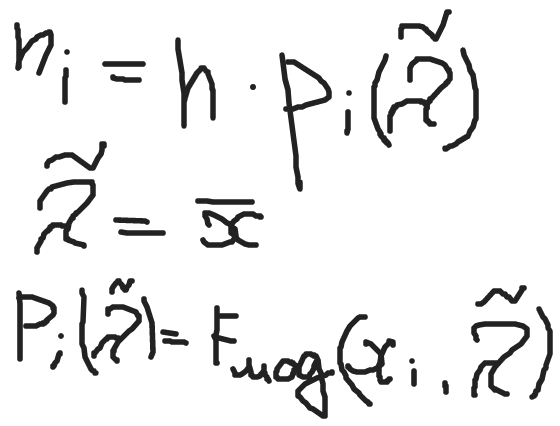 n_i = h · p_i(λ̃)
λ̃ = x̅
P_i(λ̃) = F_мод(x_i, λ̃)